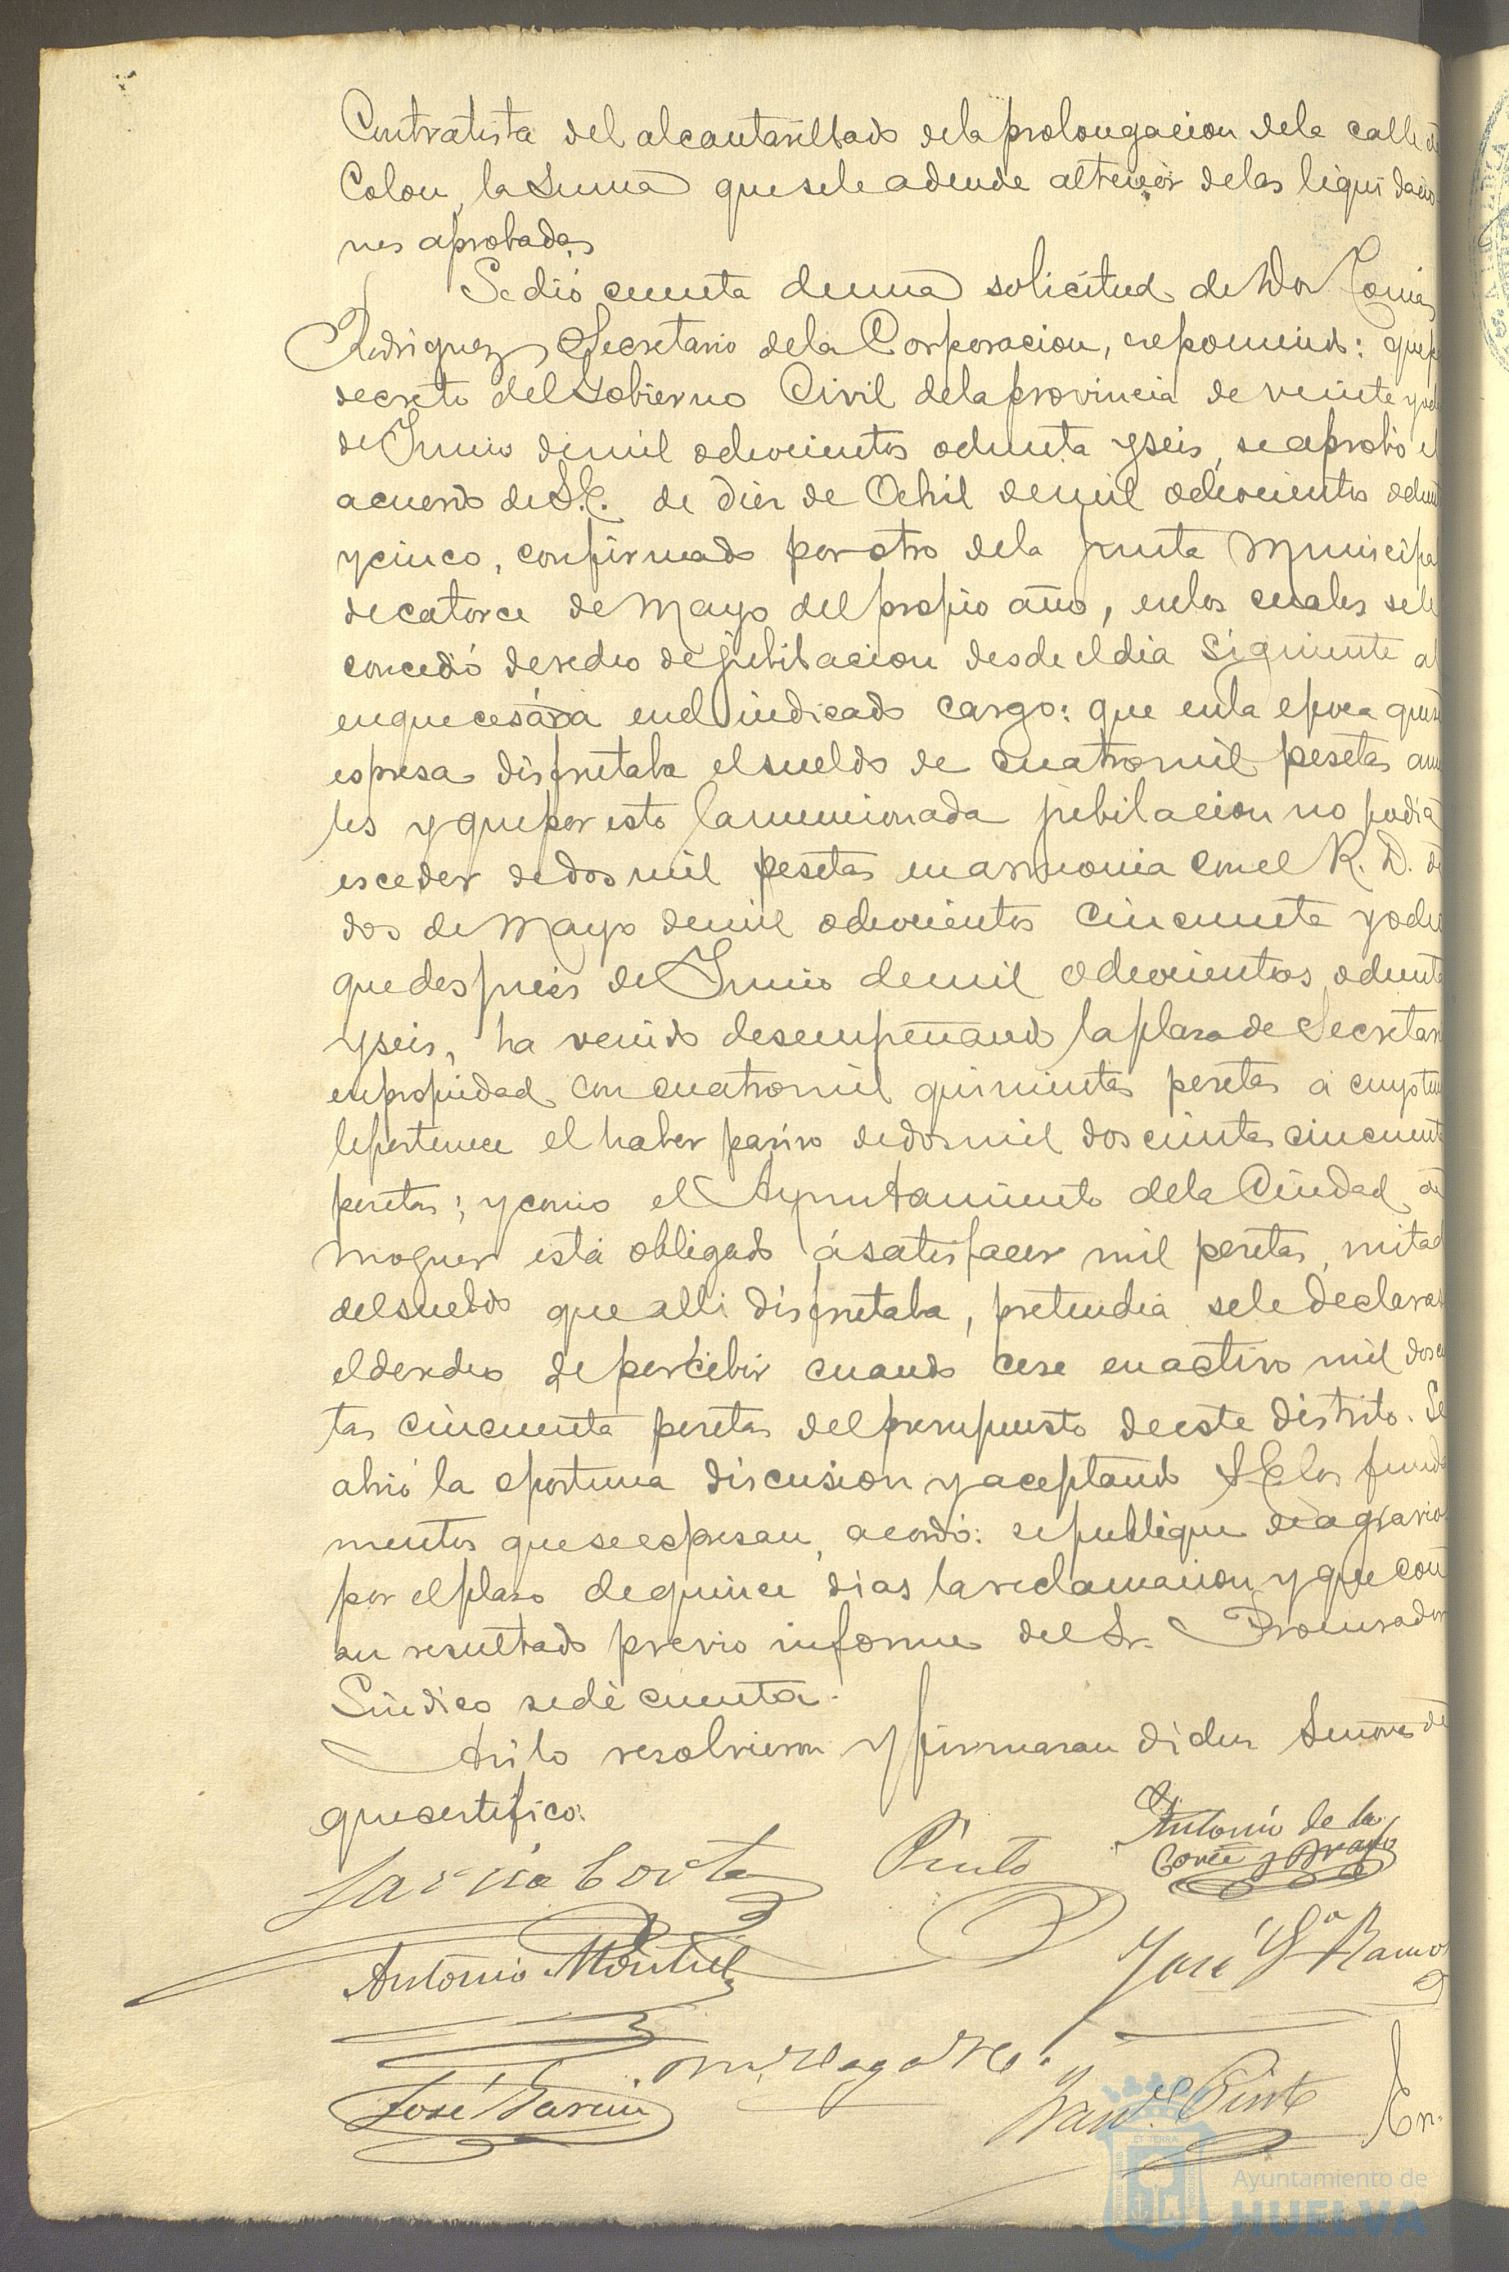 Contratista del alcantarillado dela prolongacion dela calle de
Colon, la suma que sele adeude altenor delas liquidacio
nes aprobadas
Se dió cuenta deuna solicitud de Don Tomas
Rodriguez Secretario dela Corporacion, esponiendo: que p
decreto del Gobierno Civil dela provincia de veinte y
de Junio demil ochocientos ochenta y seis, se aprobó el
acuerdo de S.E. de diez de Abril demil ochocientos ochent
y cinco, confirmado por otro dela Junta Municipal
de catorce de Mayo del propio año, enlos cuales sele
concedió derecho de jubilacion desde eldia siguiente al
enque cesára enel indicado cargo: que enla epoca que se
espresa disfrutaba elsueldo de cuatromil pesetas anua
les y que por esto la mencionada jubilacion no podia
esceder dedos mil pesetas en armonia conel R. D. de
dos de Mayo demil ochocientos cincuenta y ocho
que despues de Junio demil ochocientos ochenta
y seis, ha venido desempeñando la plaza de Secretario
enpropiedad con cuatromil quinientas pesetas á cuyo
le pertenece el haber pasivo dedosmil doscientas cincuenta
pesetas; y como el Ayuntamiento dela Ciudad de
Moguer está obligado á satisfacer mil pesetas, mitad
delsueldo que alli disfrutaba, pretendia sele declarase
elderecho de percibir cuando cese en activo mil doscien
tas cincuenta pesetas del presupuesto deeste distrito. Se
abrió la oportuna discusion y aceptando S.E. los funda
mentos que se espresan, acordó: se publique
por el plazo dequince dias la reclamacion y que con
su resultado previo informe del Sr. Procurador
Síndico sedé cuenta.
Asi lo resolvieron y firmaran dichos Señores de
que certifico:
Garcia Cortes Pinto Antonio de la
Corte y Bravo
Antonio Montiel José Ga Ramos
José Garcia
Franco. Pinto En-
Ayuntamiento de
HUELVA